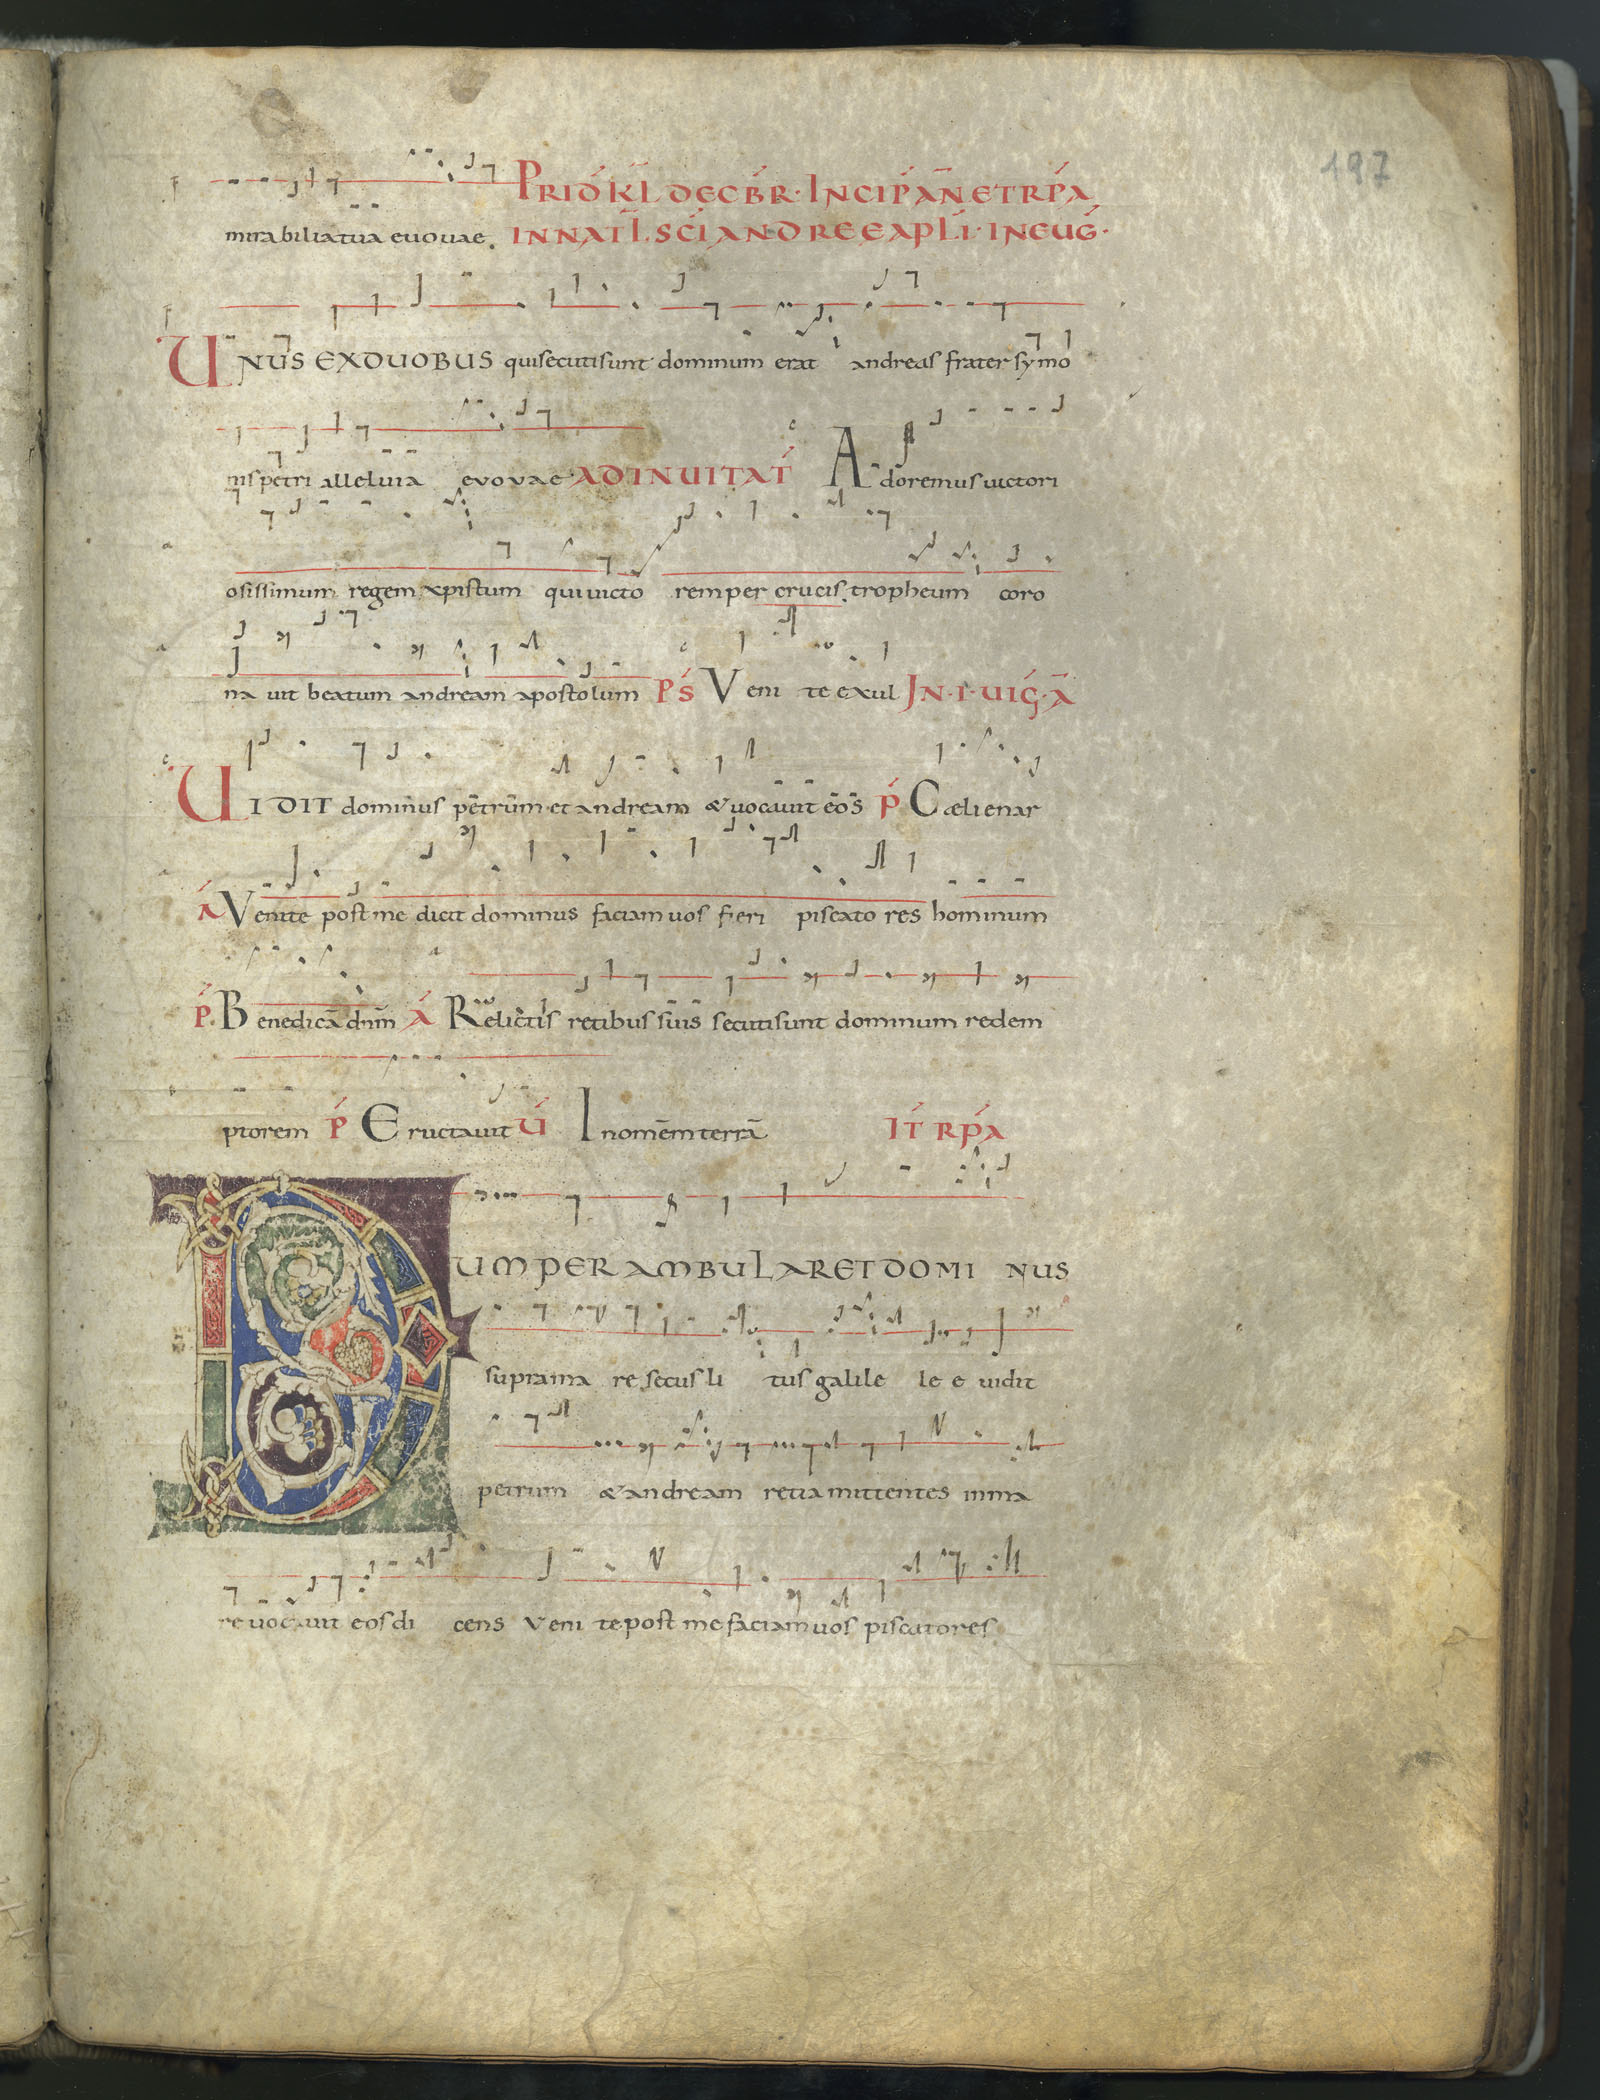 197
mirabilia tua euouae. PRID KL DECBR · INCIP AN ET RPA
IN NATL SCI ANDREE APLI · IN EUG ·
UNUS EX DUOBUS qui secuti sunt dominum erat andreas frater symo
nis petri alleluia evovae · AD INUITAT Adoremus uictori
osissimum regem xpistum qui uicto rem per crucis tropheum coro
na uit beatum andream apostolum PS Veni te exul IN · I · UIG · A
UIDIT dominus petrum et andream & uocauit eos P Cæli enar
A Venite post me dicit dominus faciam uos fieri piscato res hominum
P. Benedicā dnm A Relictis retibus suis secuti sunt dominum redem
ptorem P Eructauit U In omēm terrā IT RPA
DUM PERAMBULARET DOMI NUS
supra ma re secus li tus galile le e uidit
petrum & andream retia mittentes in ma
re uocauit eos di cens Veni te post me faciam uos piscatores